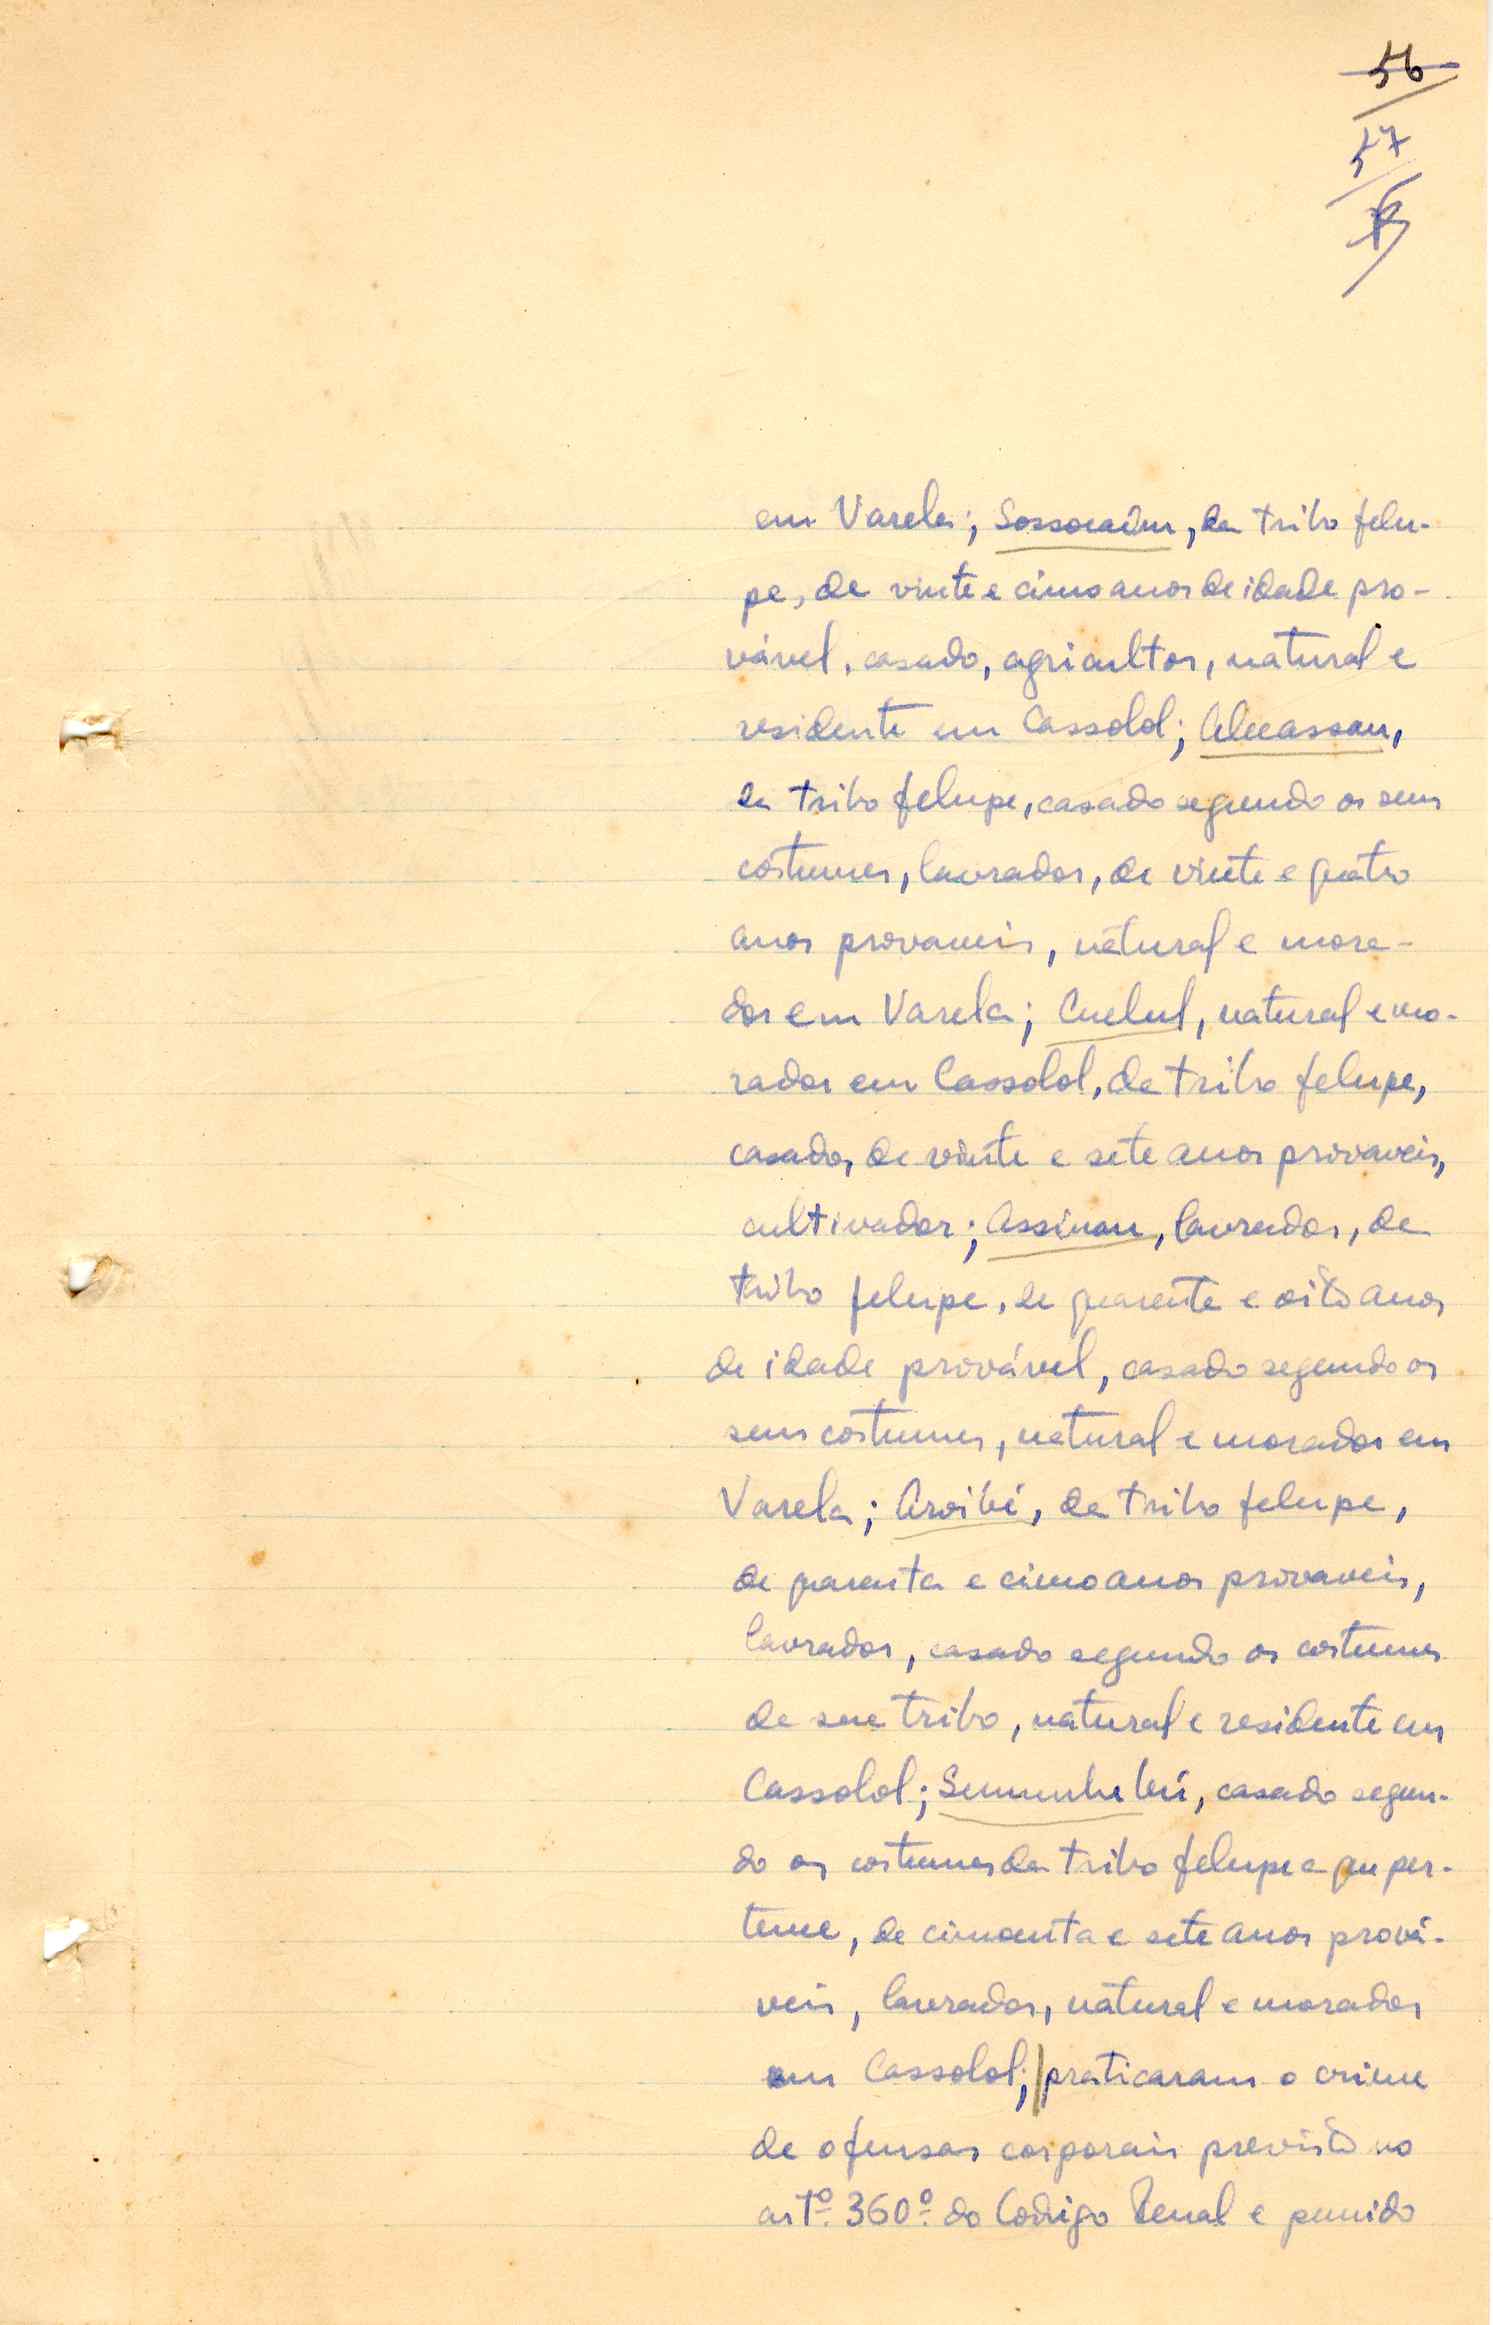 56
57
em Varela; Sossocaim, da tribo felu-
pe, de vinte e cinco anos de idade pro-
vável, casado, agricultor, natural e
residente em Cassolol; Alucassau,
da tribo felupe, casado segundo os seus
costumes, lavrador, de vinte e quatro
anos provaveis, natural e mora-
dor em Varela; Cuelul, natural e mo-
rador em Cassolol, da tribo felupe,
casado, de vinte e sete anos provaveis,
cultivador; Assinau, lavrador, da
tribo felupe, de quarenta e oito anos
de idade provável, casado segundo os
seus costumes, natural e morador em
Varela; Aroibé, da tribo felupe,
de quarenta e cinco anos provaveis,
lavrador, casado segundo os costumes
da sua tribo, natural e residente em
Cassolol; casado segun-
do os costumes da tribo felupe a que per-
tence, de cincoenta e sete anos prová-
veis, lavrador, natural e morador
em Cassolol; praticaram o crime
de ofensas corporais previsto no
artº. 360º. do Codigo Penal e punido